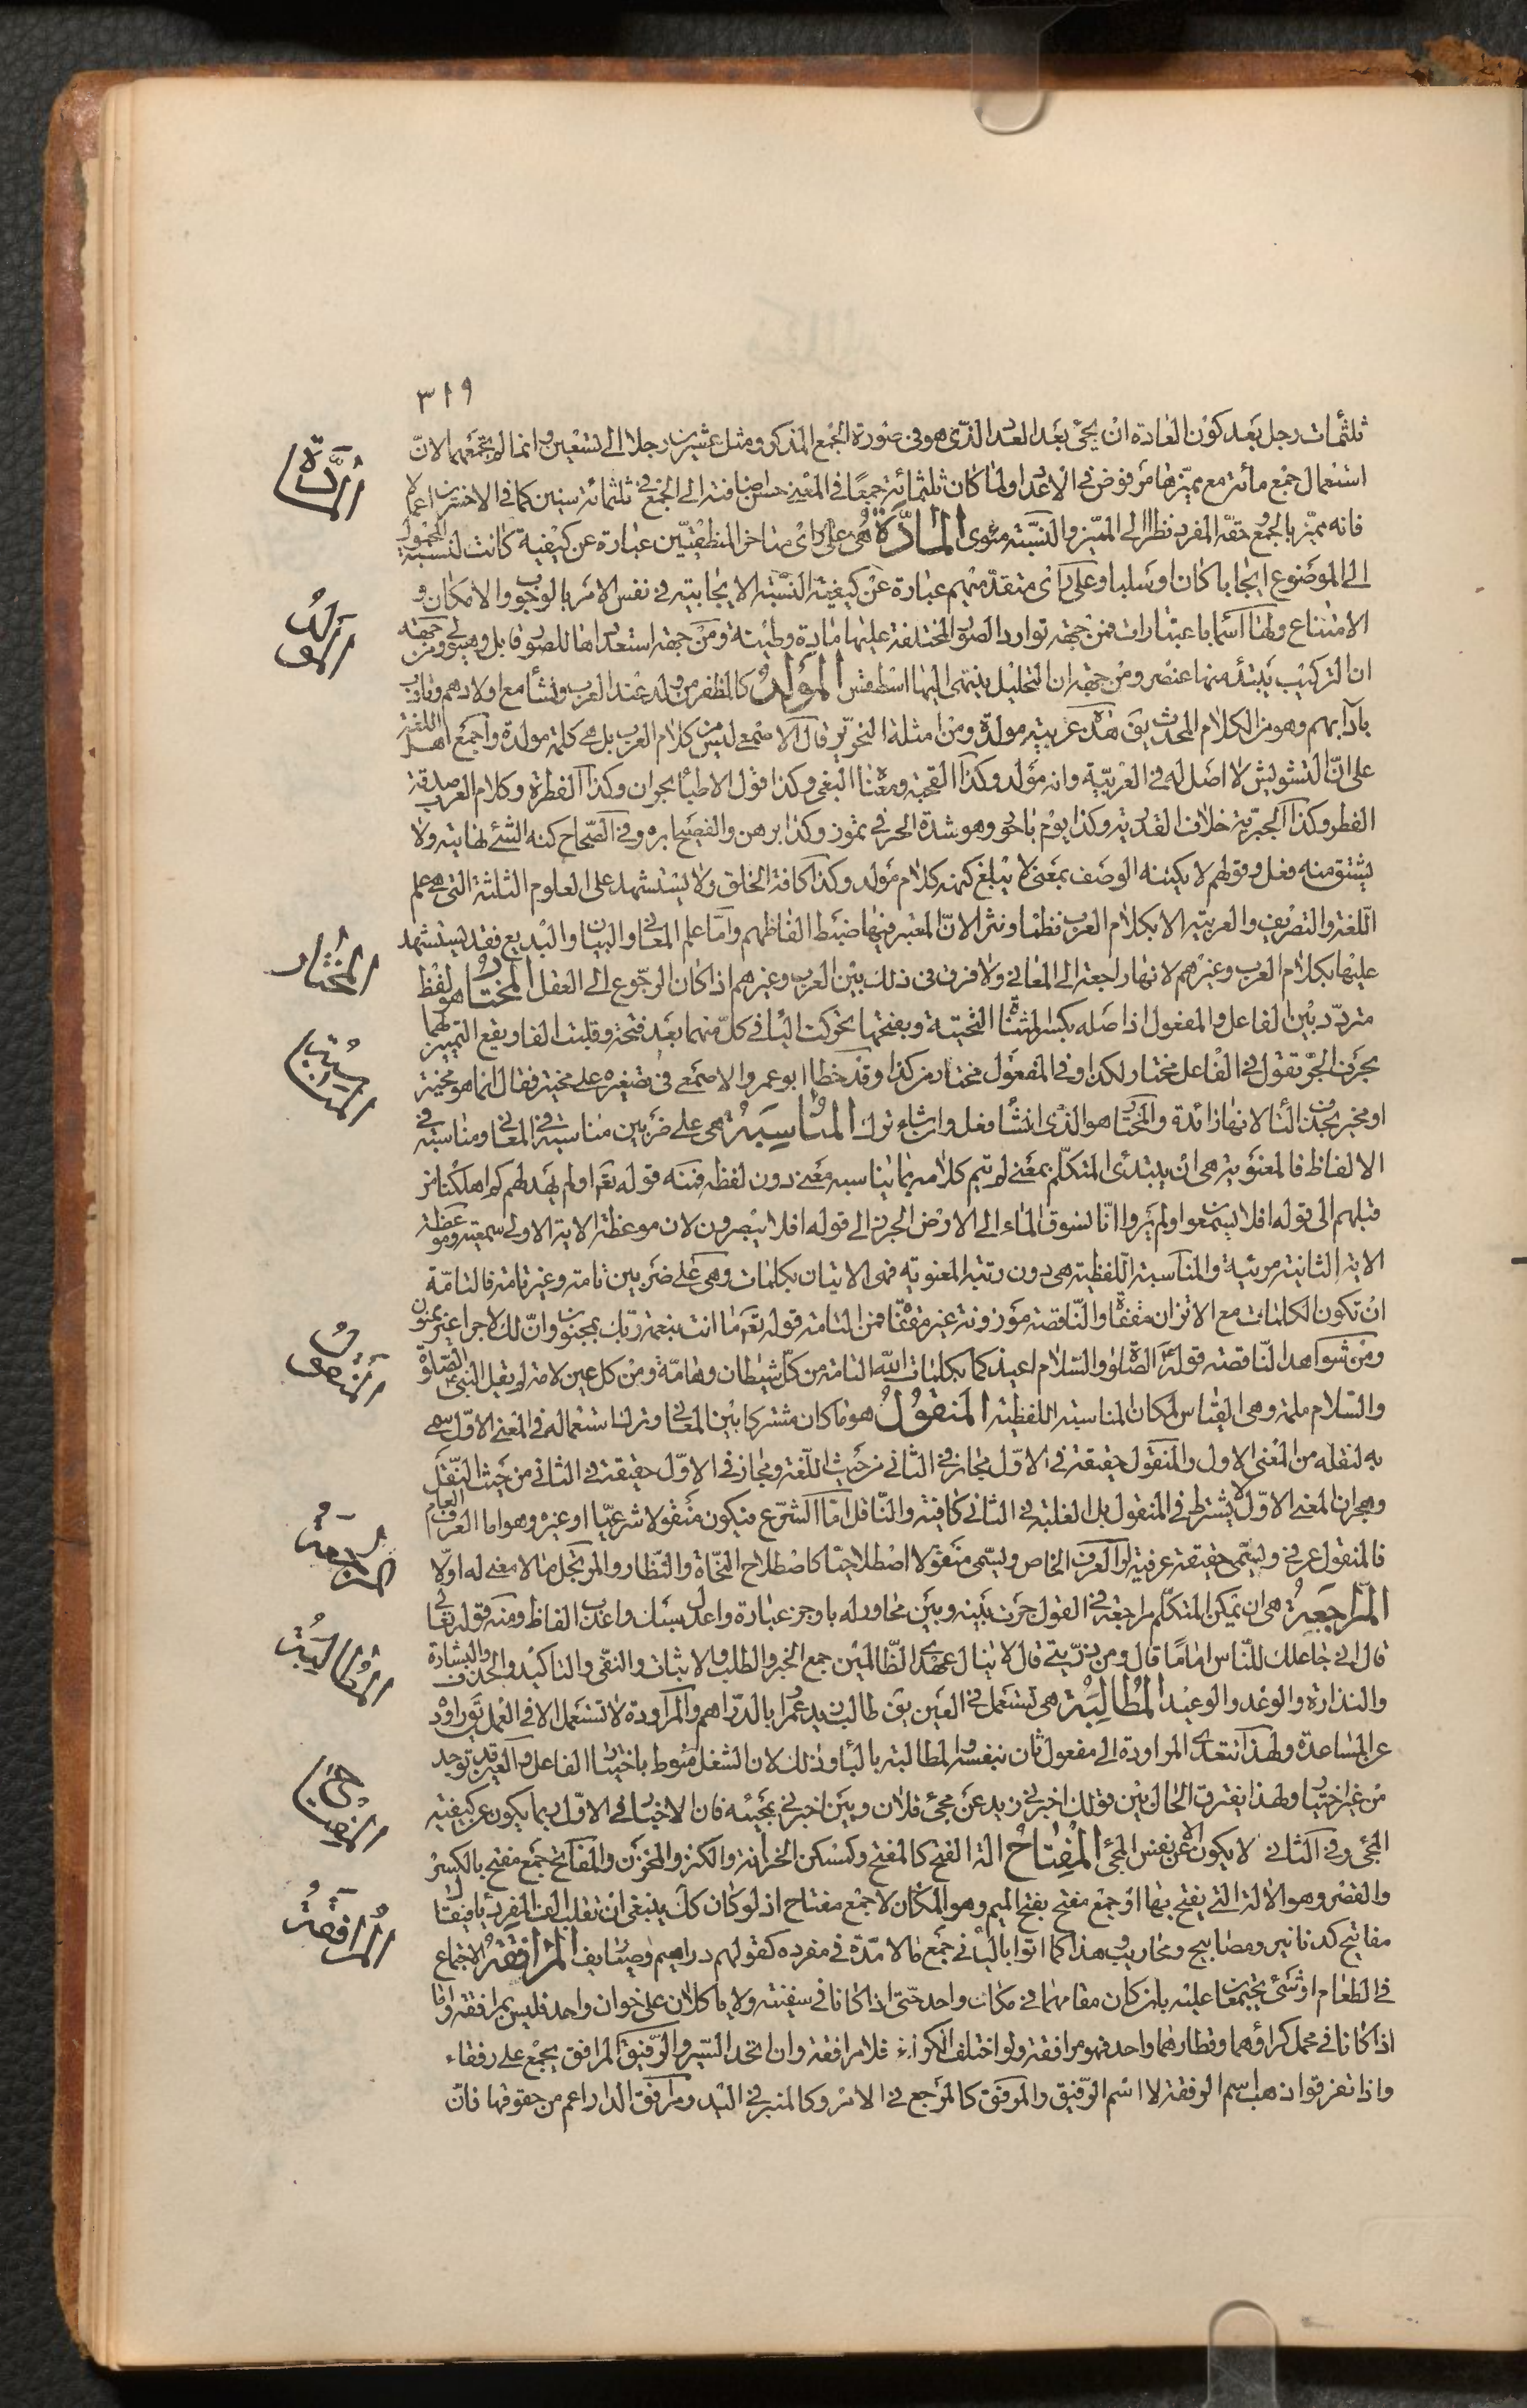 ٣١٩
ثلثمات رجل بعد كون العادة ان يجئ بعد العدد الذى هو فى صورة الجمع المذكر ومثل عشرين رجلا الى تسعين وانما لم يجمعهما لانّ
استعمال جمع مائة مع مميّزها مرفوض فى الاعداد ولما كان ثلثمائة جمعًا فى المعنى حسن اضافته الى الجمع فى ثلثمائة سنين كما فى الاخسرين اعمالا
فانه مميّز بالجمع وحقّه المفرد نظرا الى المميّز والنسبة منوى المادَّة هى على رأى متاخر المنطقيّين عبارة عن كيفية كانت لنسبة المحمول
الى الموضوع ايجابا كان او سلبا وعلى رأى متقدّميهم عبارة عن كيفية النسبة الايجابية فى نفس الامر بالوجوب والامكان و
الامتناع ولها اسماء باعتبارات فمن جهة توارد الصور المختلفة عليها مادة وطينة ومن جهة استعدادها للصور قابل وهيولى ومن جهة
ان التركيب يبتدء منها عنصر ومن جهة ان التحليل ينتهى اليها اسطقس المُوَلَّدُ كالمظفر من ولد عند العرب ونشأ مع اولادهم وتأدب
بآدابهم وهو من الكلام المحدث يق هذه عربية مولدة ومن امثلة النحوير قال الاصمعى ليس من كلام العرب بل هى كلمة مولدة واجمع اهل اللغة
على انّ التشويش لا اصل له فى العربيّة وانه مولد وكذا القحبة ومعناه البغى وكذا قول الاطباء بحران وكذا الفطرة وكلام العرب صدقة
الفطر وكذا الجبريّة خلاف القدرية وكذا يوم باحور وهو شدة الحر فى تموز وكذا برهن والفصيح ابره وفى الصّحاح كنه الشئ نهايته ولا
يشتق منه فعل وقولهم لا يكتنه الوصف بمعنى لا يبلغ كنهه كلام مولد وكذا كافة الخلق ولا يستشهد على العلوم الثلثة التى هى علم
اللّغة والتصريف والعربية الا بكلام العرب نظما ونثرا لانّ المعتبر فيها ضبط الفاظهم وامّا علم المعانى والبيان والبديع فقد يستشهد
عليها بكلام العرب وغيرهم لانها راجعة الى المعانى ولا فرق فى ذلك بين العرب وغيرهم اذا كان الرجوع الى العقل المُختارُ هو لفظ
متردّد بين الفاعل والمفعول اذ اصله بكسر المثناة التحتية وبفتحها تحركت الياء فى كلّ منهما بعد فتحة وقلبت الفا ويقع التمييز لهما
بحرف الجر تقول فى الفاعل مختار لكذا وفى المفعول مختار من كذا وقد خطا ابو عمرو الاصمعى فى تصغيره على مخيتير فقال انما هو مخيّر
او مخير بحذف التاء لانها زائدة والمختار هو الذى ان شاء فعل وان شاء ترك المُناسَبَةُ هى على ضربين مناسبة فى المعانى ومناسبة فى
الالفاظ فالمعنوية هى ان يبتدئ المتكلّم بمعنى ثم يتم كلامه بما يناسبه معنى دون لفظ فمنه قوله تعم اولم يهد لهم كم اهلكنا من
قبلهم الى قوله افلا يسمعوا اولم يروا انّا نسوق الماء الى الارض الجرز الى قوله افلا يبصرون لان موعظة الاية الاولى سمعية وموعظة
الاية الثانية مرئية والمناسبة اللّفظية هى دون رتبة المعنويه فهى الاتيان بكلمات وهى على ضربين تامة وغير تامة فالتامّة
ان تكون الكلمات مع الاتزان مقفاة والنّاقصة موزونة غير مقفاة فمن التامة قوله تعم ما انت بنعمة ربّك بمجنون وانّ لك لاجرا غير ممنون
ومن شواهد النّاقصة قوله عليه الصّلوة والسّلام اعيذكما بكلمات الله التامة من كلّ شيطان وهامّة ومن كل عين لامة لم يقل النبى عليه الصّلوة
والسلام ملمة وهى القياس لمكان المناسبة اللفظية المَنقُولُ هو ما كان مشتركا بين المعانى وترك استعماله فى المعنى الاوّل سمى
به لنقله من المعنى الاول والمنقول حقيقة فى الاوّل مجاز فى الثانى من حيث اللّغة ومجاز فى الاوّل حقيقة فى الثانى من حيث النّقل
وهجران المعنى الاوّل لا يشترط فى المنقول بل الغلبة فى الثانى كافية والنّاقل امّا الشرع فيكون منقولا شرعيّا او غيره وهو اما العرف العام
فالمنقول عرفى ويسمّى حقيقة عرفية او العرف الخاص ويسمّى منقولا اصطلاحيّا كاصطلاح النحّاة والنظّار والمرتجل ما لا معنى له اوّلا
المُرَاجَعَةُ هى ان يمكى المتكلّم مراجعة فى القول جرت بينه وبين محاور له باوجز عبارة واعدل سبك واعذب الفاظ ومنه قوله تعالى
قال انّى جاعلك للنّاس امامًا قال ومن ذرّيتى قال لا ينال عهدى الظّالمين جمع الخبر والطلب والاثبات والنفى والتاكيد والحذف والبشارة
والنذارة والوعد والوعيد المُطالَبَة هى تستعمل فى العين يق طالب زيد عمرا بالدّراهم والمراودة لا تستعمل الا فى العمل يق راوده
عن المساعدة ولهذا تتعدى المراودة الى مفعول ثان بنفسه والمطالبة بالباء وذلك لان الشغل منوط باختيار الفاعل والعين قد توجد
من غير اختيار ولهذا يفترق الحال بين قولك اخبرنى زيد عن مجئ فلان وبين اخبرنى بمجيئه فان الاخبار فى الاوّل ربما يكون عن كيفية
المجئ وفى الثانى لا يكون الا عن نفس المجئ المِفتاحُ الة الفتح كالمفتح وكمسكن الخزانة والكنز والمخزن والمفاتح جمع مفتح بالكسر
والقصر وهو الالة التى يفتح بها او جمع مفتح بفتح الميم وهو المكان لا جمع مفتاح اذ لو كان كك ينبغى ان تقلب الف المفرد ياء فيقال
مفاتيح كدنانير ومصابيح ومحاريب وهذا كما اتوا بالياء فى جمع ما لا مدّة فى مفرده كقولهم دراهيم وصياريف المُرَافَقَةُ الاجتماع
فى الطعام او شئ يجتمعا عليه بان كان مقامهما فى مكان واحد حتّى اذا كانا فى سفينة ولا ياكلان على خوان واحد فليس بمرافقة واما
اذا كانا فى محمل كراؤهما وقطارهما واحد فهو مرافقة ولو اختلف الكراء فلا مرافقة وان اتحد السّير والرّفيق المرافق يجمع على رفقاء
واذا تفرقوا ذهب اسم الرفقة لا اسم الرّفيق والمرفق كالمرجع فى الامر وكالمنبر فى اليد ومرافق الدار اعم من حقوقها فانّ
المادَّة
المولَّدُ
المختار
المناسبة
المنقول
المراجعة
المطالبة
المفتاح
المرافقة